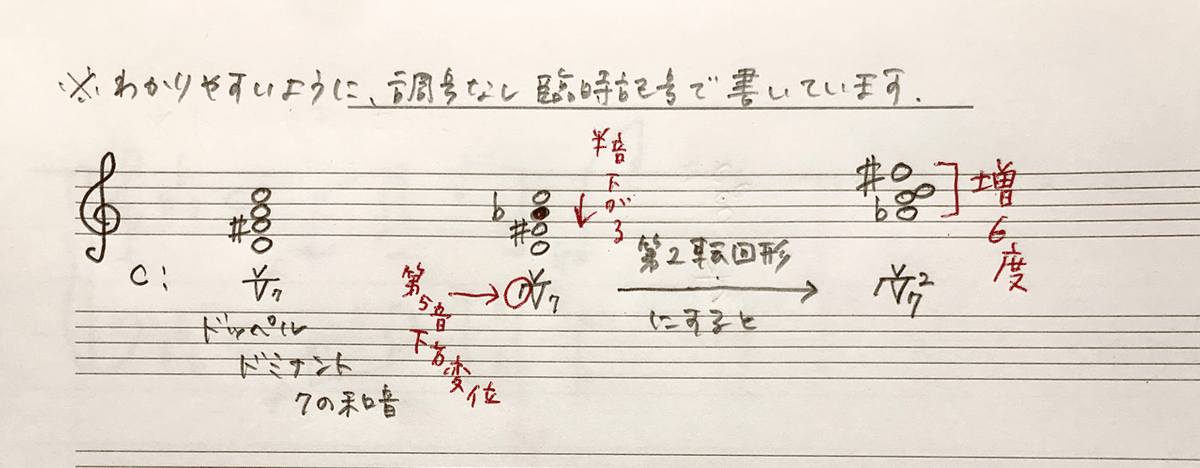 ※わかりやすいように、調号なし臨時記号で書いています.
半音下がる
増6度
C:
V7
ドッペル
ドミナント
7の和音
第5音下方変位
V7
第2転回形
にすると
V7²